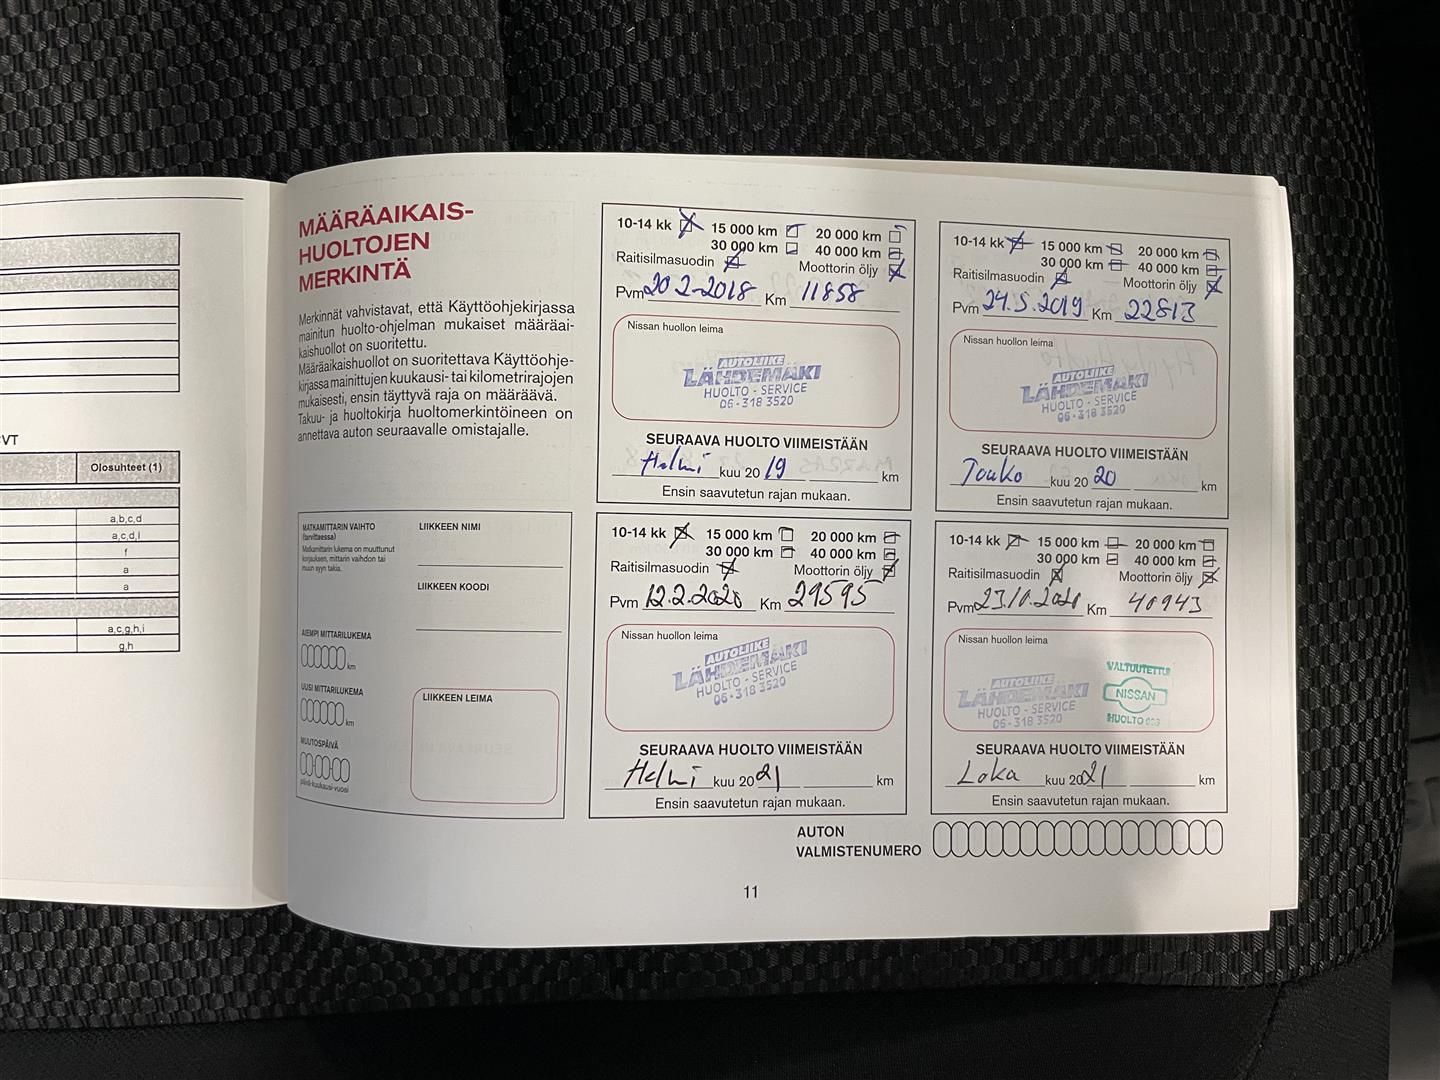 VT
Olosuhteet (1)
a,b,c,d
a,c,d,l
f
a
a
a,c,g,h,i
g,h
MÄÄRÄAIKAIS-
HUOLTOJEN
MERKINTÄ
Merkinnät vahvistavat, että Käyttöohjekirjassa
mainitun huolto-ohjelman mukaiset määräai-
kaishuollot on suoritettu.
Määräaikaishuollot on suoritettava Käyttöohje-
kirjassa mainittujen kuukausi- tai kilometrirajojen
mukaisesti, ensin täyttyvä raja on määräävä.
Takuu- ja huoltokirja huoltomerkintöineen on
annettava auton seuraavalle omistajalle.
MATKAMITTARIN VAIHTO
(tarvittaessa)
Matkamittarin lukema on muuttunut
korjauksen, mittarin vaihdon tai
muun syyn takia.
AIEMPI MITTARILUKEMA
km
UUSI MITTARILUKEMA
km
MUUTOSPÄIVÄ
päivä-kuukausi-vuosi
LIIKKEEN NIMI
LIIKKEEN KOODI
LIIKKEEN LEIMA
10-14 kk 15 000 km 20 000 km
30 000 km 40 000 km
Raitisilmasuodin Moottorin öljy
Pvm 20 2-2018 Km 11858
Nissan huollon leima
AUTOLIIKE
LÄHDEMÄKI
HUOLTO - SERVICE
06-318 3520
SEURAAVA HUOLTO VIIMEISTÄÄN
Helmi kuu 20 19 km
Ensin saavutetun rajan mukaan.
10-14 kk 15 000 km 20 000 km
30 000 km 40 000 km
Raitisilmasuodin Moottorin öljy
Pvm 24.5.2019 Km 22813
Nissan huollon leima
AUTOLIIKE
LÄHDEMÄKI
HUOLTO - SERVICE
06-318 3520
SEURAAVA HUOLTO VIIMEISTÄÄN
Touko kuu 20 20 km
Ensin saavutetun rajan mukaan.
10-14 kk 15 000 km 20 000 km
30 000 km 40 000 km
Raitisilmasuodin Moottorin öljy
Pvm 12.2.2020 Km 29595
Nissan huollon leima
AUTOLIIKE
LÄHDEMÄKI
HUOLTO - SERVICE
06-318 3520
SEURAAVA HUOLTO VIIMEISTÄÄN
Helmi kuu 20 21 km
Ensin saavutetun rajan mukaan.
10-14 kk 15 000 km 20 000 km
30 000 km 40 000 km
Raitisilmasuodin Moottorin öljy
Pvm 23.10.2020 Km 40943
Nissan huollon leima
AUTOLIIKE
LÄHDEMÄKI
HUOLTO - SERVICE
06-318 3520
VALTUUTETTU
NISSAN
HUOLTO
SEURAAVA HUOLTO VIIMEISTÄÄN
Loka kuu 20 21 km
Ensin saavutetun rajan mukaan.
AUTON
VALMISTENUMERO
11